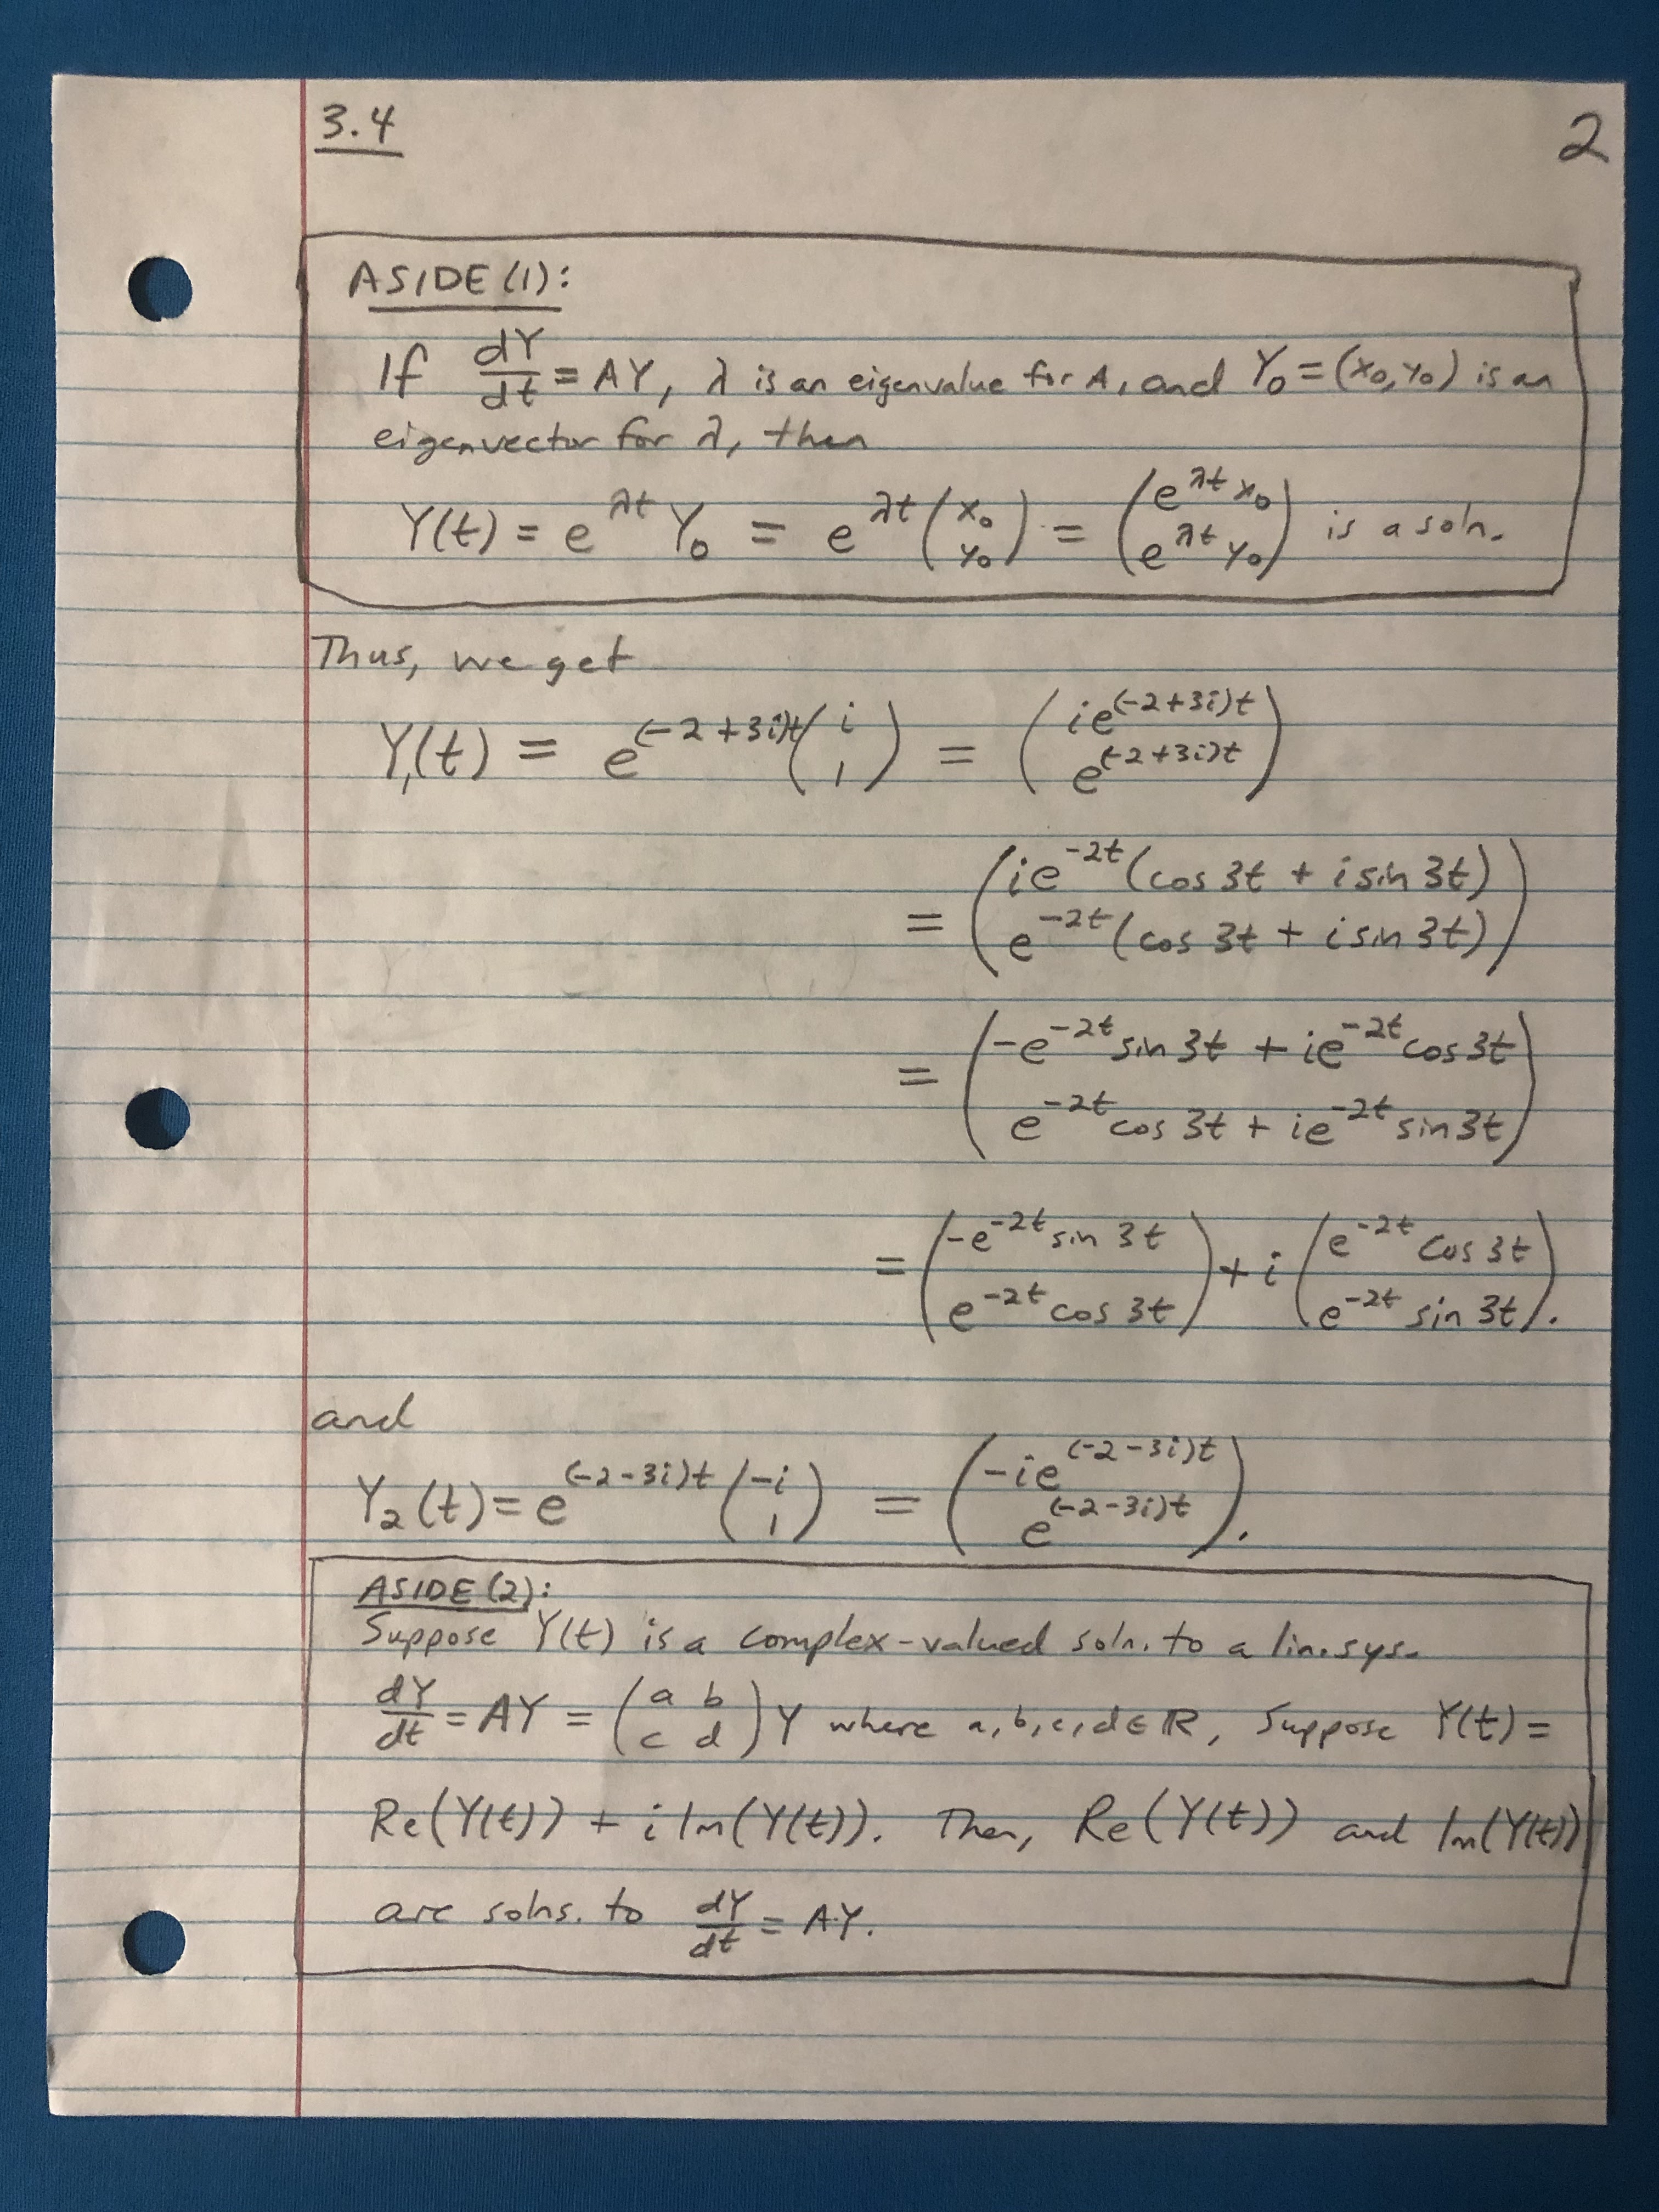 3.4
2
ASIDE(1):
If dY/dt = AY, λ is an eigenvalue for A, and Y₀ = (x₀, y₀) is an
eigenvector for λ, then
Y(t) = e^{λt} Y₀ = e^{λt} (x₀ y₀) = (e^{λt} x₀ e^{λt} y₀) is a soln.
Thus, we get
Y₁(t) = e^{(-2+3i)t} (i 1) = (ie^{(-2+3i)t} e^{(-2+3i)t})
= (ie^{-2t}(cos 3t + i sin 3t) e^{-2t}(cos 3t + i sin 3t))
= (-e^{-2t} sin 3t + ie^{-2t} cos 3t e^{-2t} cos 3t + ie^{-2t} sin 3t)
= (-e^{-2t} sin 3t e^{-2t} cos 3t) + i (e^{-2t} cos 3t e^{-2t} sin 3t).
and
Y₂(t) = e^{(-2-3i)t} (-i 1) = (-ie^{(-2-3i)t} e^{(-2-3i)t}).
ASIDE(2):
Suppose Y(t) is a complex-valued soln. to a lin. sys.
dY/dt = AY = (a b c d) Y where a, b, c, d ∈ ℝ, Suppose Y(t) =
Re(Y(t)) + i Im(Y(t)). Then, Re(Y(t)) and Im(Y(t))
are solns. to dY/dt = AY.